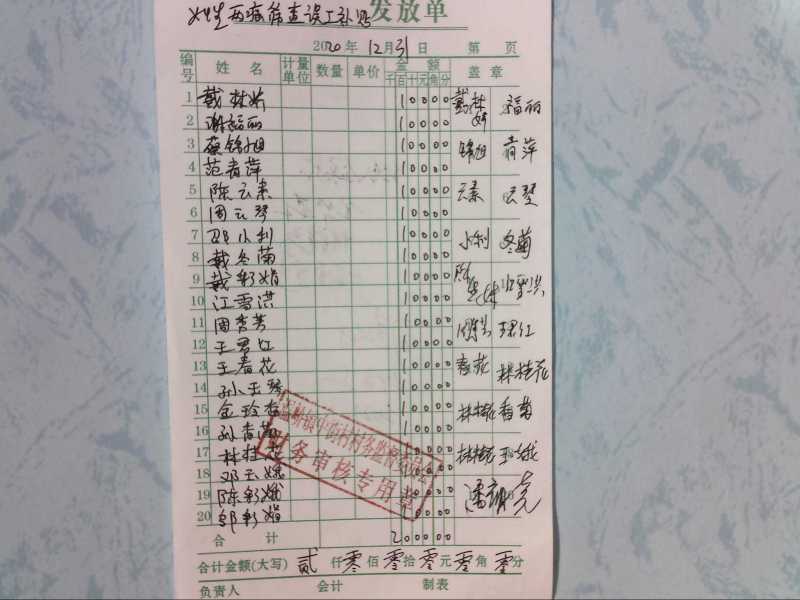 女性两病筛查误工补贴 发放单
2020年 12月31日 第 页
编号 姓名 计量单位 数量 单价 金额 盖章
千 百 十 元 角 分
1 戴林娇 10000 戴林娇 福丽
2 谢福丽 10000
3 蔡锦旭 10000 锦旭 肖萍
4 范肖萍 10000
5 陈云素 10000 云素 云琴
6 周云琴 10000
7 邵小利 10000 小利 冬菊
8 戴冬菊 10000
9 戴彩娟 10000
10 江雪洪 10000 江雪洪
11 周秀芳 10000
12 王君红 10000 君红
13 王春花 10000 春花 林桂花
14 孙玉琴 10000
15 金玲香 10000 香菊
16 孙香菊 10000
17 林桂花 10000
18 邓玉娥 10000
19 陈彩娥 10000
20 邹彩娟 10000
合计 200000
合计金额(大写) 贰仟零佰零拾零元零角零分
负责人 会计 制表
财务审核专用章